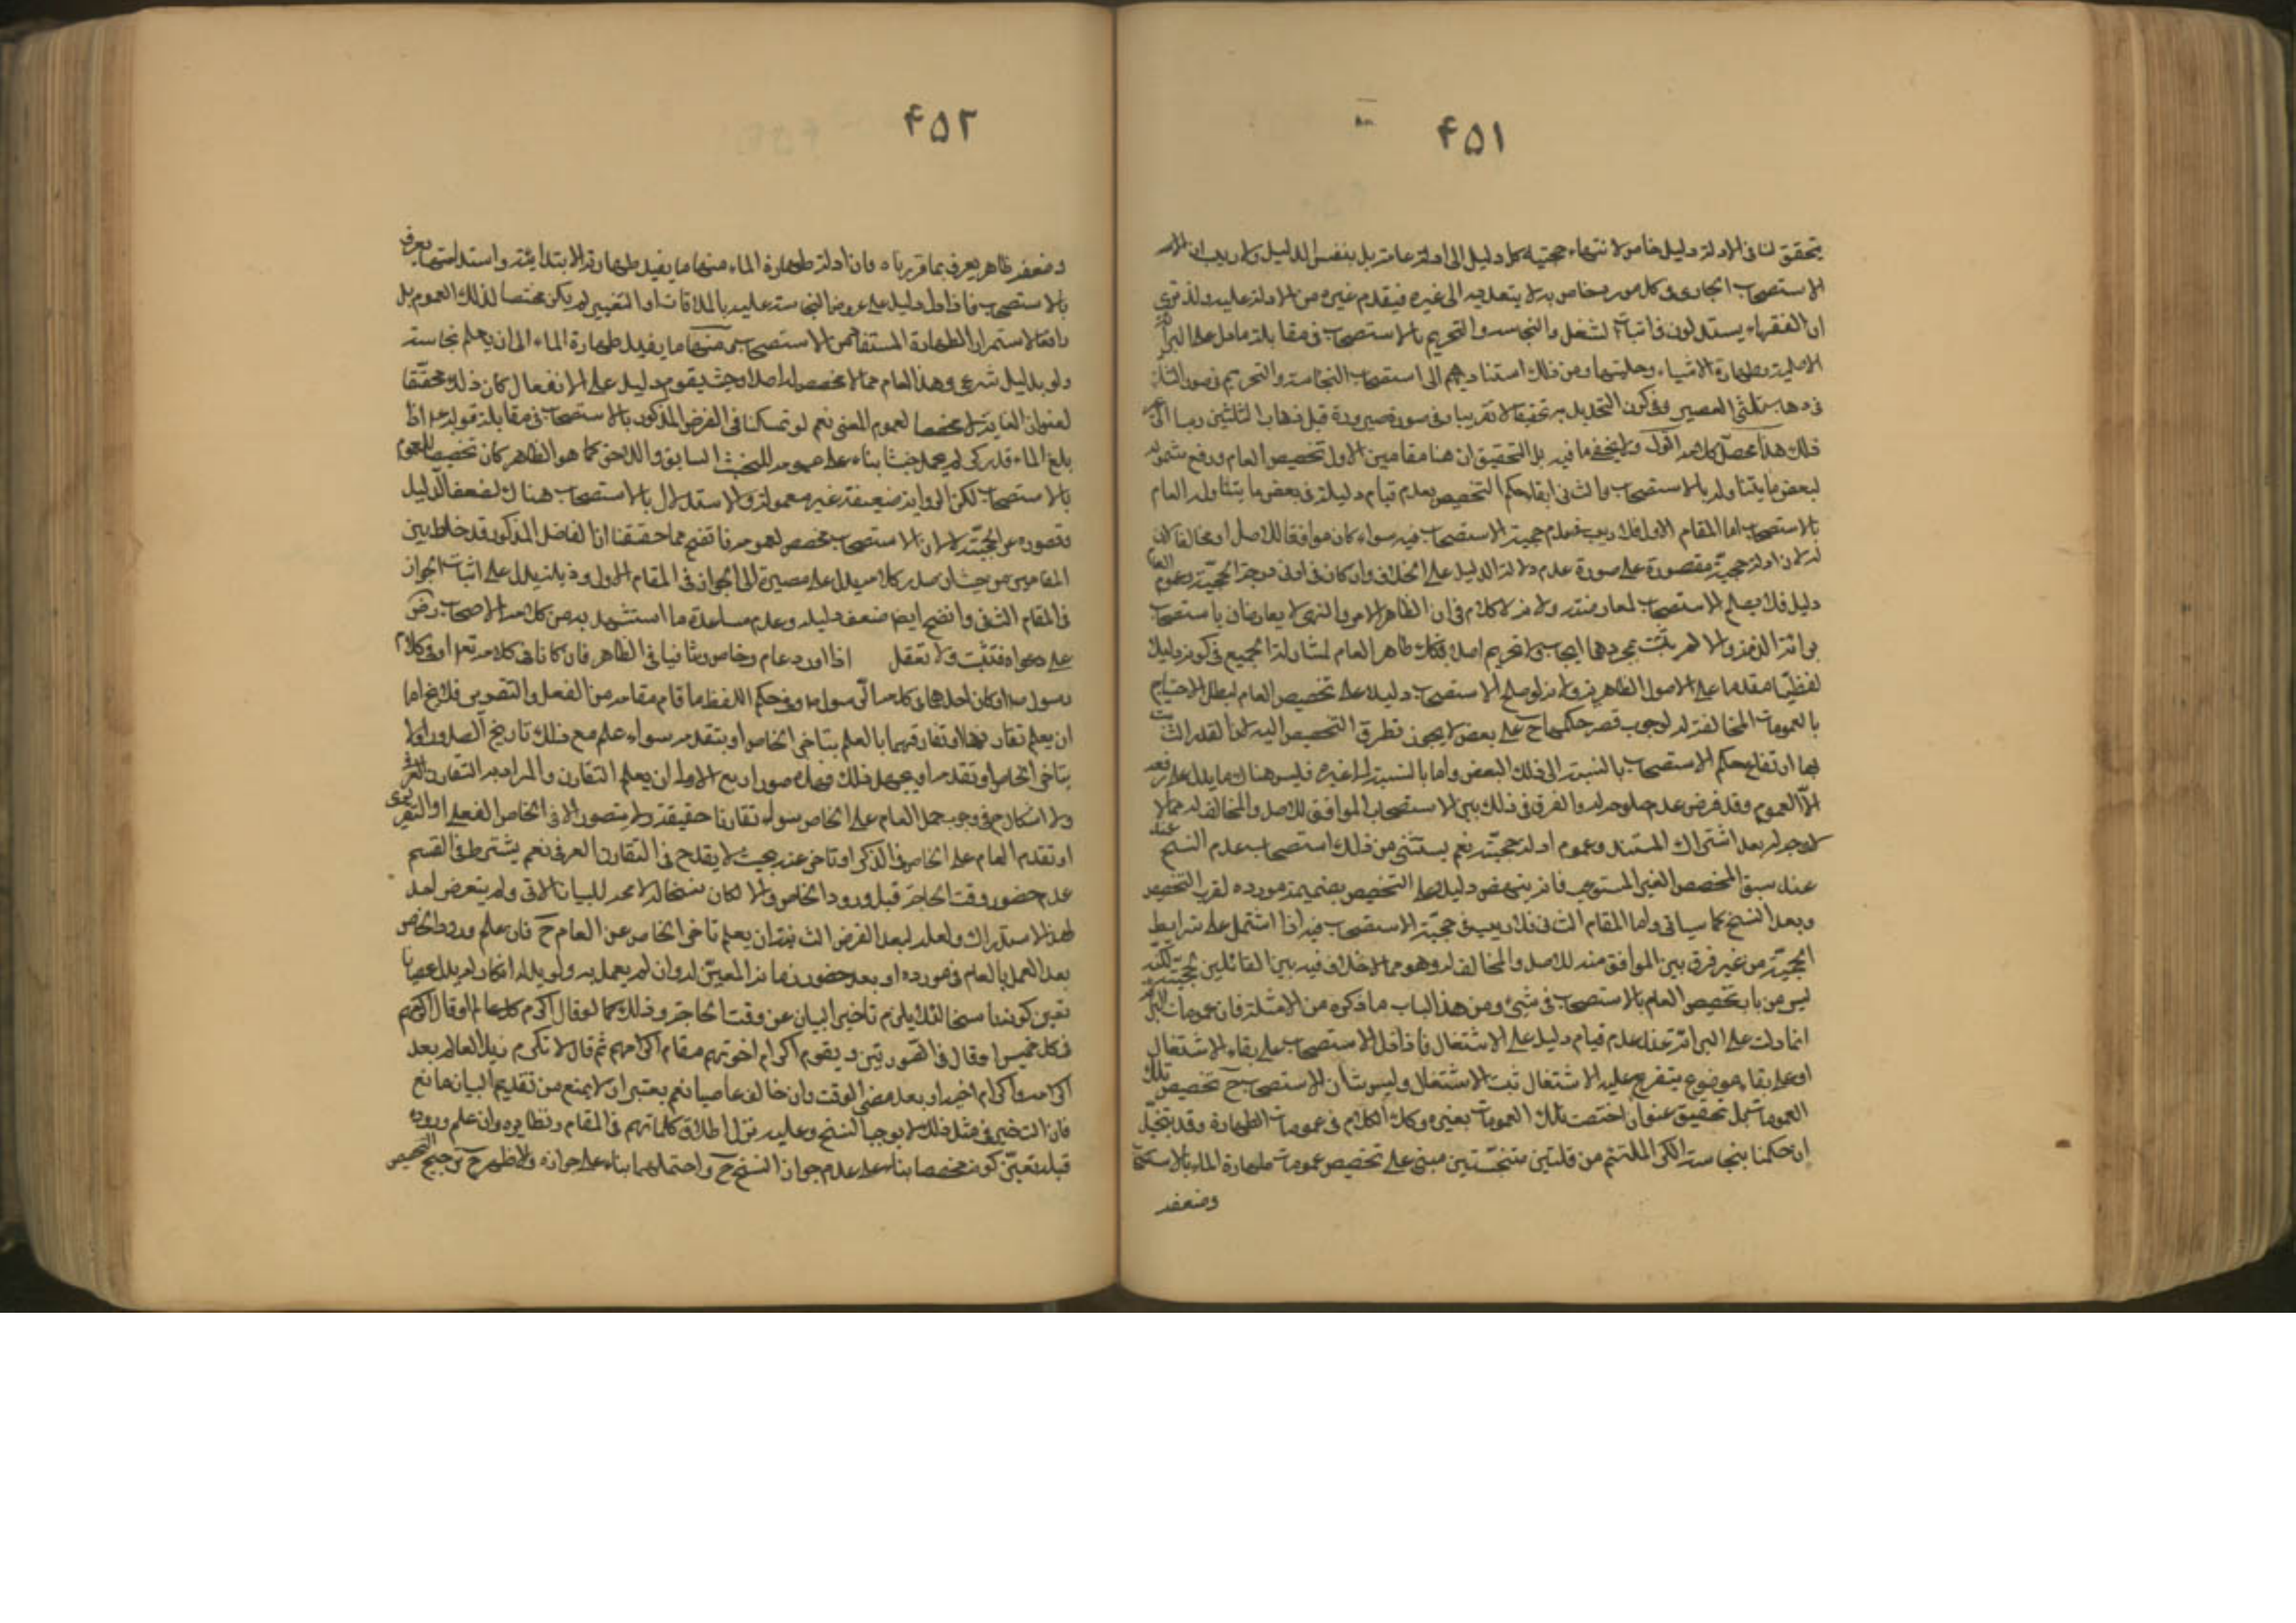 ۴۵۱
يتحقق لنا فى الادلة دليل خاص لانتهاء حجتية كل دليل الى ادلة عامة بل بنفس الدليل ولا ريب ان الامر
الاستصحاب الجارى فى كل مورد خاص به لا يتعداه الى غيره فيقدم غيره من الادلة عليه ولذا ترى
ان الفقهاء يستدلون فى اثبات الشغل والنجاسة والتحريم بالاستصحاب فى مقابلة ما دل على البرائة
الاصلية وطهارة الاشياء وحليتها ومن ذلك استنادهم الى استصحاب النجاسة والتحريم فى صورة الشك
فى ذهاب ثلثى العصير وفى كون التحديد به تحقيقا لا تقريبا وفى صورة صيرورة قبل ذهاب الثلثين دبسا الى غير
ذلك هذا محصل كلامه اقول ولا يخفى ما فيه بل التحقيق ان هنا مقامين الاول تخصيص العام ودفع شموله
لبعض ما يتناوله بالاستصحاب والثانى ابقاء حكم التخصيص بعدم قيام دليله فى بعض ما يتناوله العام
بالاستصحاب اما المقام الاول فلا ريب فى عدم حجية الاستصحاب فيه سواء كان موافقا للاصل او مخالفا كان
له لان ادلة حجية مقصورة على صورة عدم دلالة الدليل على الخلاف وان كان فى ادنى درجة الحجية وعموم العام
دليل فلا يصلح الاستصحاب لمعارضته ولانه لا كلام فى ان الظاهر الامر والنهى لا يعارضان باستصحاب
برائة الذمة والا لم يثبت بمجردهما ايجاب ولا تحريم اصلا فكذلك ظاهر العام لمشاركة الجميع فى كونه دليلا
لفظيا مقدما على الاصول الظاهرية ولانه لو صلح الاستصحاب دليلا على تخصيص العام لبطل الاحتجاج
بالعمومات المخالفة له لوجوب قصر حكمها ح على بعض لا يجوز تطرق التخصيص اليه لانه القدر الثابت
بها ارتفاع حكم الاستصحاب بالنسبة الى ذلك البعض واما بالنسبة الى غيره فليس هناك ما يدل على رفعه
الا العموم وقد فرض عدم صلوحه له والفرق فى ذلك بين الاستصحاب الموافق للاصل والمخالف له مما لا
لا وجه له بعد اشتراك المستند وعموم ادلة حجيته نعم يستثنى من ذلك استصحاب عدم النسخ
عند سبق المخصص الغير المستوعب فانه ينهض دليلا على التخصيص بضميمة مورده لقرب التخصيص
وبعد النسخ كما سياتى واما المقام الثانى فلا ريب فى حجية الاستصحاب فيه اذا اشتمل على شرايط
الحجية من غير فرق بين الموافق منه للاصل والمخالف له وهو مما لا خلاف فيه بين القائلين بحجيته لكنه
ليس من باب تخصيص العام بالاستصحاب فى شىء ومن هذا الباب ما ذكره من الامثلة فان عمومات البرائة
انما دلت على البرائة عند عدم قيام دليل على الاشتغال فاذا دل الاستصحاب على بقاء الاشتغال
او على بقاء موضوع يتفرع عليه الاشتغال ثبت الاشتغال وليس شان الاستصحاب ح تخصيص تلك
العمومات بل تحقيق عنوان اختصت تلك العمومات بغيره وكذا الكلام فى عمومات الطهارة وقد يتخيل
ان حكمنا بنجاسة الكر الملتئم من قلتين متنجستين مبنى على تخصيص عمومات طهارة الماء بالاستصحاب
وضعفه
۴۵۲
وضعفه ظاهر يعرف بما قررناه فان ادلة طهارة الماء منها ما يفيد طهارته الابتدائية واستدامتها يعرف
بالاستصحاب فاذا دل دليل على عروض النجاسة عليه بالملاقات او التغيير لم يكن مختصا لذلك العموم بل
رافعا لاستمرار الطهارة المستفاد من الاستصحاب ومنها ما يفيد طهارة الماء الى ان يعلم نجاسته
ولو بدليل شرعى وهذا العام مما لا مخصص له اصلا وحيث يقوم دليل على الانفعال كان ذلك محققا
لعنوان الغاية لا مخصصا لعموم المغيى نعم لو تمسكنا فى الفرض المذكور بالاستصحاب فى مقابلة قوله ع اذا
بلغ الماء قدر كر لم يحمل خبثا بناء على عمومه للخبث السابق واللاحق كما هو الظاهر كان تخصيصا للعموم
بالاستصحاب لكن الرواية ضعيفة غير معمولة والاستدلال بالاستصحاب هناك لضعف الدليل
وقصوره عن الحجية لا لان الاستصحاب مخصص لعمومه فاتضح مما حققنا ان الفاضل المذكور قد خلط بين
المقامين من حيث ان صدر كلامه يدل على مصيره الى الجواز فى المقام الاول وذيله يدل على اثبات الجواز
فى المقام الثانى واتضح ايضا ضعف دليله وعدم مساعدة ما استشهد به من كلام الاصحاب رض
على دعواه فتثبت ولا تغفل اذا ورد عام وخاص وتنافيا فى الظاهر فان كانا فى كلامه تعالى او فى كلام
رسوله ص او كان احدهما فى كلامه الى رسوله وفى حكم اللفظ ما قام مقامه من الفعل والتقرير فلا يخ اما
ان يعلم تقارنهما او تفارقهما بالعلم بتاخر الخاص او بتقدمه سواء علم مع ذلك تاريخ الصدور او لا
بتاخر الخاص او تقدمه او يجهل ذلك فهذه صور اربع الاولى ان يعلم التقارن والمراد به التقارن العرفى
ولا اشكال ح فى وجوب حمل العام على الخاص سواء تقارنا حقيقة ولا يتصور الا فى الخاص الفعلى او التقريرى
او تقدم العام على الخاص فى الذكر او تاخر عنه بحيث لا يقدح فى التقارن العرفى نعم يشترط فى القسم
عدم حضور وقت الحاجة قبل ورود الخاص والا لكان نسخا له لا محه للبيان الاتى ولم يتعرض احد
لهذا الاستدراك ولعله لبعد الفرض الثانية ان يعلم تاخر الخاص عن العام ح فان علم ورود الخاص
بعد العمل بالعام فى مورده او بعد حضور زمانه المعين له وان لم يعمل به ولو بدلا اذا كان له بدل عصيانا
تعين كونه نسخا لئلا يلزم تاخير البيان عن وقت الحاجة وذلك كما لو قال اكرم كل عالم او قال اكرمهم
فى كل خميس او قال فى الصورتين ويقوم اكرام اخوتهم مقام اكرامهم ثم قال لا تكرم زيد العالم بعد
اكرامه او اكرام اخيه او بعد مضى الوقت وان خالف عاصيا نعم يعتبر ان لا يمنع من تقديم البيان مانع
فان التاخير فى مثل ذلك لا يوجب النسخ وعليه ينزل اطلاق كلماتهم فى المقام ونظايره وان علم وروده
قبله تعين كونه مخصصا بناء على عدم جواز النسخ ح واحتملهما بناء على جوازه والاظهر ح ترجيح التخصيص